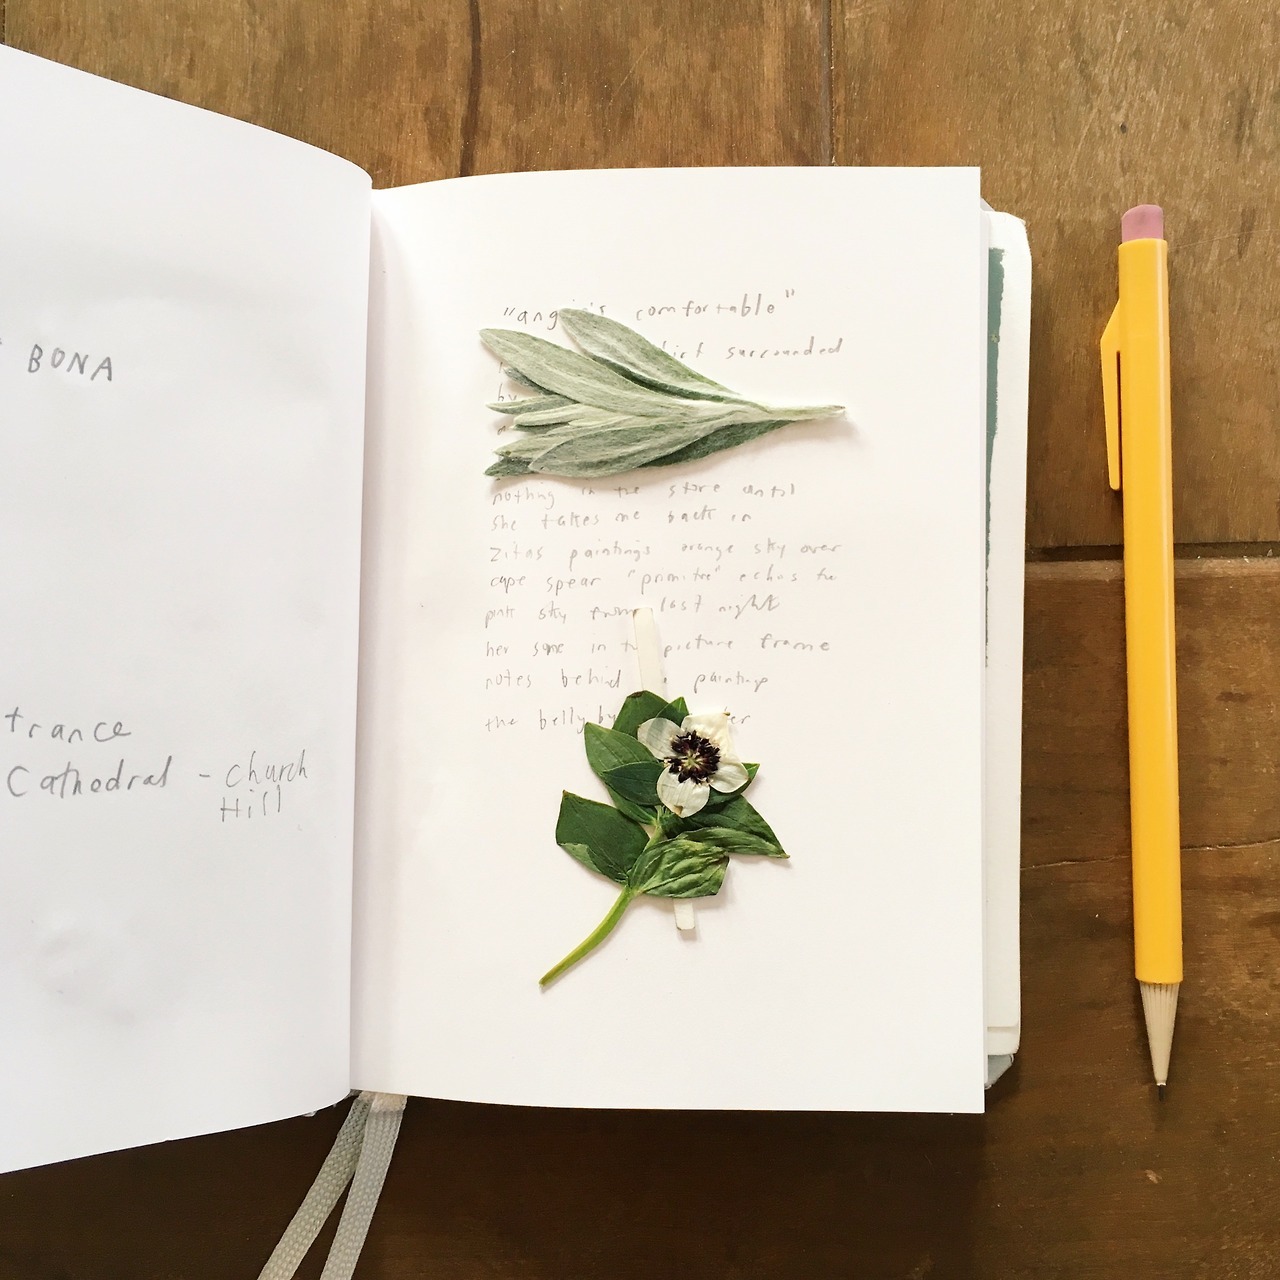 BONA
trance
Cathedral - Church
Hill
comfortable"
surrounded
by
nothing in the store until
she takes me back in
Zitas paintings orange sky over
cape spear echos the
pink sky from last night
her some in picture frame
notes behind paintings
the belly